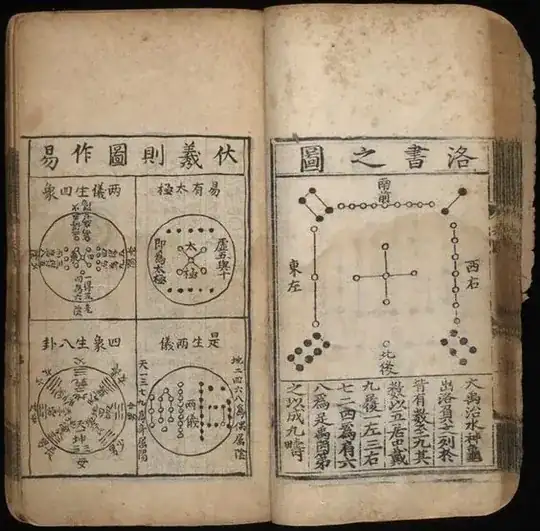 洛書之圖
南前
西右
東左
北後
大禹治水神龜
出洛負文列於
背有數至九其
數以五居中戴
九履一左三右
七二四為肩六
八為足禹因第
之以成九疇
伏羲則圖作易
易有太極
虛五與十
太極
即為太極
是生兩儀
地二四六八為偶屬陰
兩儀
天一三七九為奇屬陽
兩儀生四象
四象生八卦